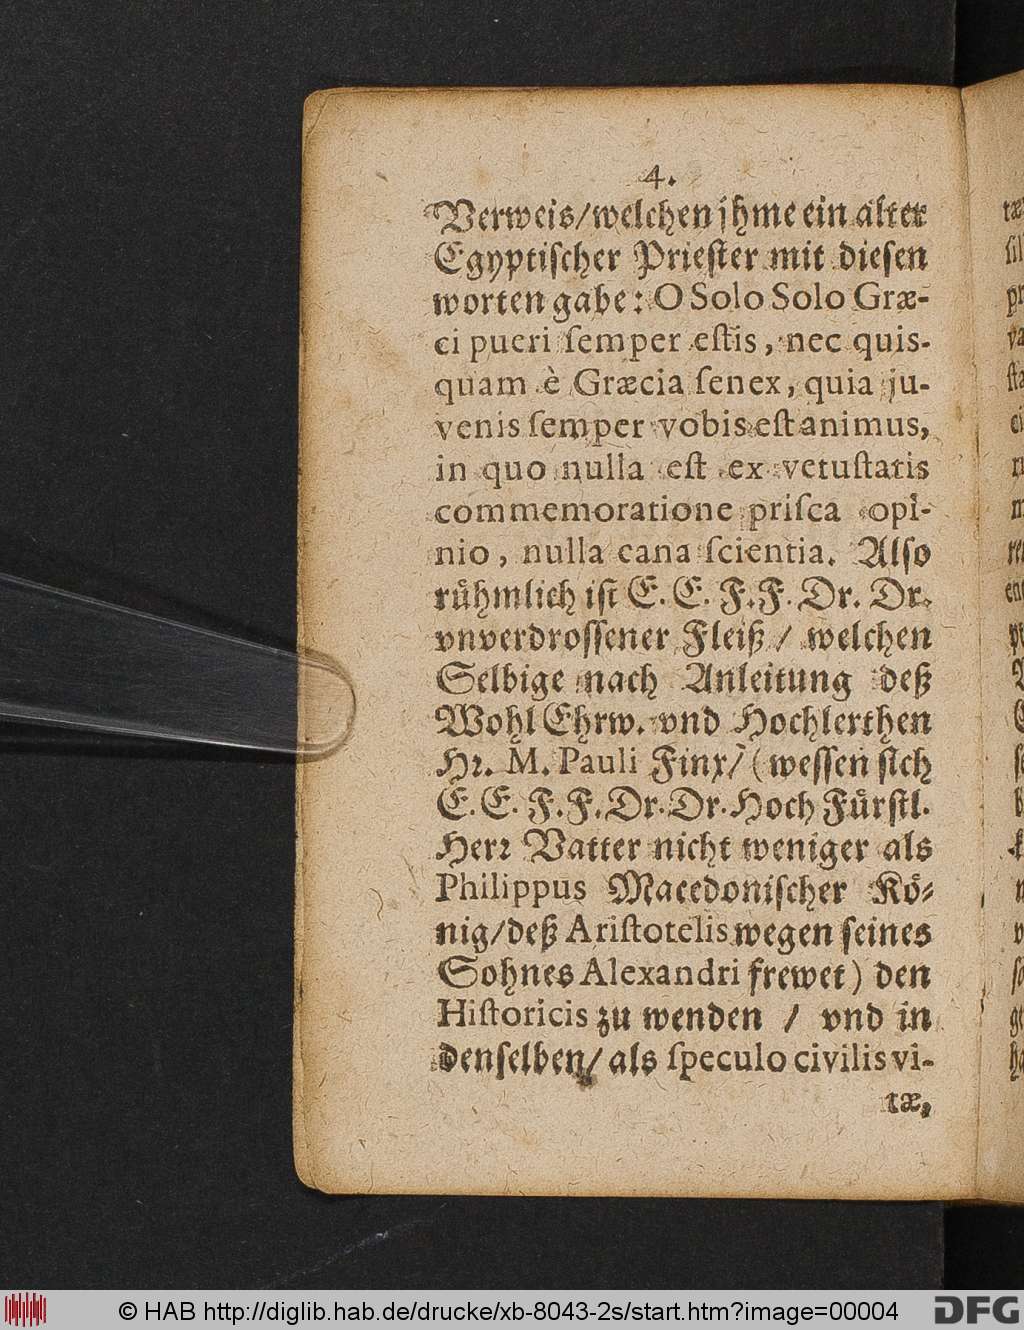 4.
Verweis/welchen jhme ein alter
Egyptischer Priester mit diesen
worten gabe: O Solo Solo Græ-
ci pueri ſemper eſtis, nec quis-
quam è Græcia ſenex, quia ju-
venis ſemper vobis eſt animus,
in quo nulla eſt ex vetuſtatis
commemoratione priſca opi-
nio, nulla cana ſcientia. Also
rühmlich ist E. E. F. F. Dr. Dr.
vnverdrossener Fleiß / welchen
Selbige nach Anleitung deß
WohlEhrw. vnd Hochlerthen
Hr. M. Pauli Finx/ (wessen sich
E. E. F. F. Dr. Dr. Hoch Fürstl.
Herr Vatter nicht weniger als
Philippus Macedonischer Kö-
nig/deß Ariſtotelis wegen seines
Sohnes Alexandri frewet) den
Hiſtoricis zu wenden / vnd in
denselben/ als ſpeculo civilis vi-
tæ,
© HAB http://diglib.hab.de/drucke/xb-8043-2s/start.htm?image=00004
DFG